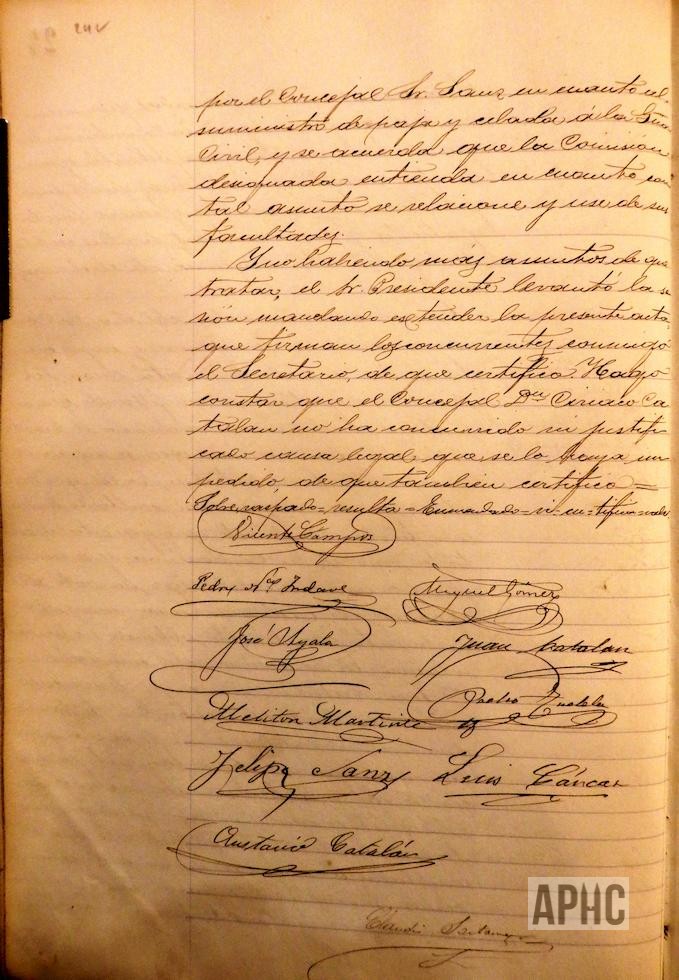 24 v
por el Concejal Sr. Sanz en cuanto al
suministro de paja y cebada á la
Civil, y se acuerda que la Comisión
designada entienda en cuanto con
tal asunto se relacione y use de sus
facultades.
Y no habiendo más asuntos de que
tratar, el Sr. Presidente levantó la se
sión mandando extender la presente acta
que firman los concurrentes conmigo
el Secretario, de que certifico. Hago
constar que el Concejal Dn Ciriaco Ca
talan no ha concurrido ni justifi
cado causa legal que se lo haya im
pedido, de que tambien certifico=
Sobre raspado=resulta=Enmendado=
Vicente Campos
Pedro Indave Miguel Gómez
José Ayala Juan Catalan
Meliton Martinez Pedro
Felipe Sanz Luis Cáncar
Custanio Catalán
Claudio
APHC